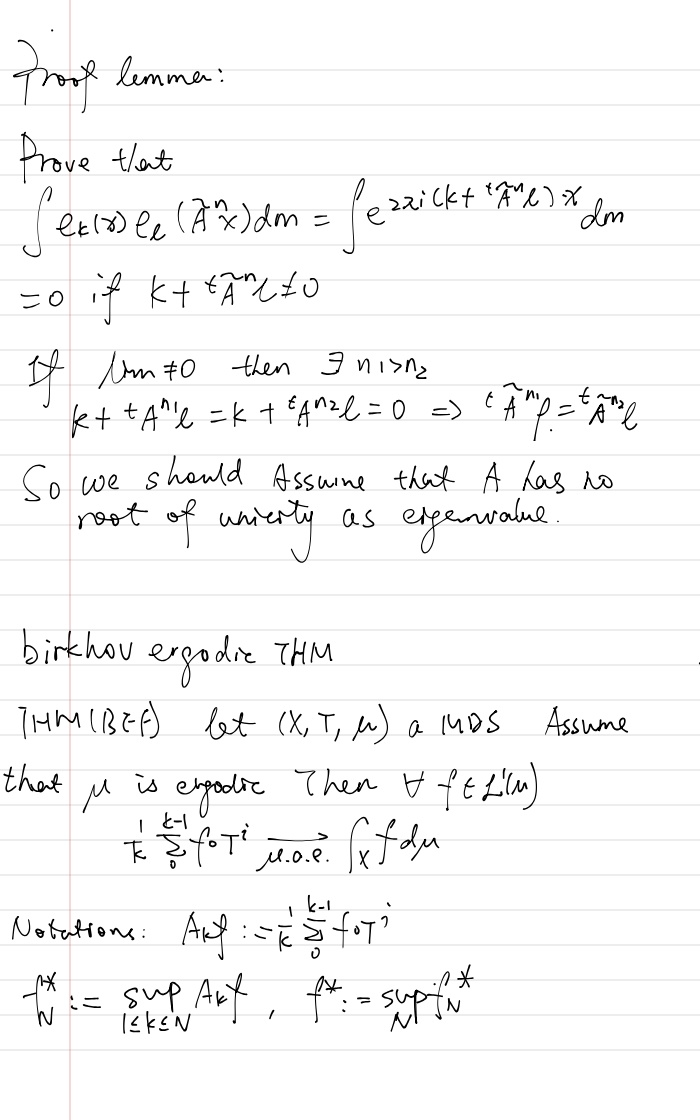 Proof lemma:
Prove that
∫ e_k(x) e_l (Ã^n x) dm = ∫ e^{2πi(k + ᵗÃ^n l)·x} dm
= 0 if k + ᵗÃ^n l ≠ 0
If lim ≠ 0 then ∃ n1 > n2
k + ᵗA^{n1} l = k + ᵗA^{n2} l = 0 ⇒ ᵗÃ^{n1} l = ᵗÃ^{n2} l
So we should Assume that A has no
root of unierty as eigenvalue.
birkhov ergodic THM
THM (BET) let (X, T, μ) a MDS Assume
that μ is ergodic Then ∀ f ∈ L¹(μ)
1/k Σ_0^{k-1} f∘T^i →_{μ.a.e.} ∫_X f dμ
Notations: A_k f := 1/k Σ_0^{k-1} f∘T^i
f_N^* := sup_{1≤k≤N} A_k f , f^* := sup_N f_N^*